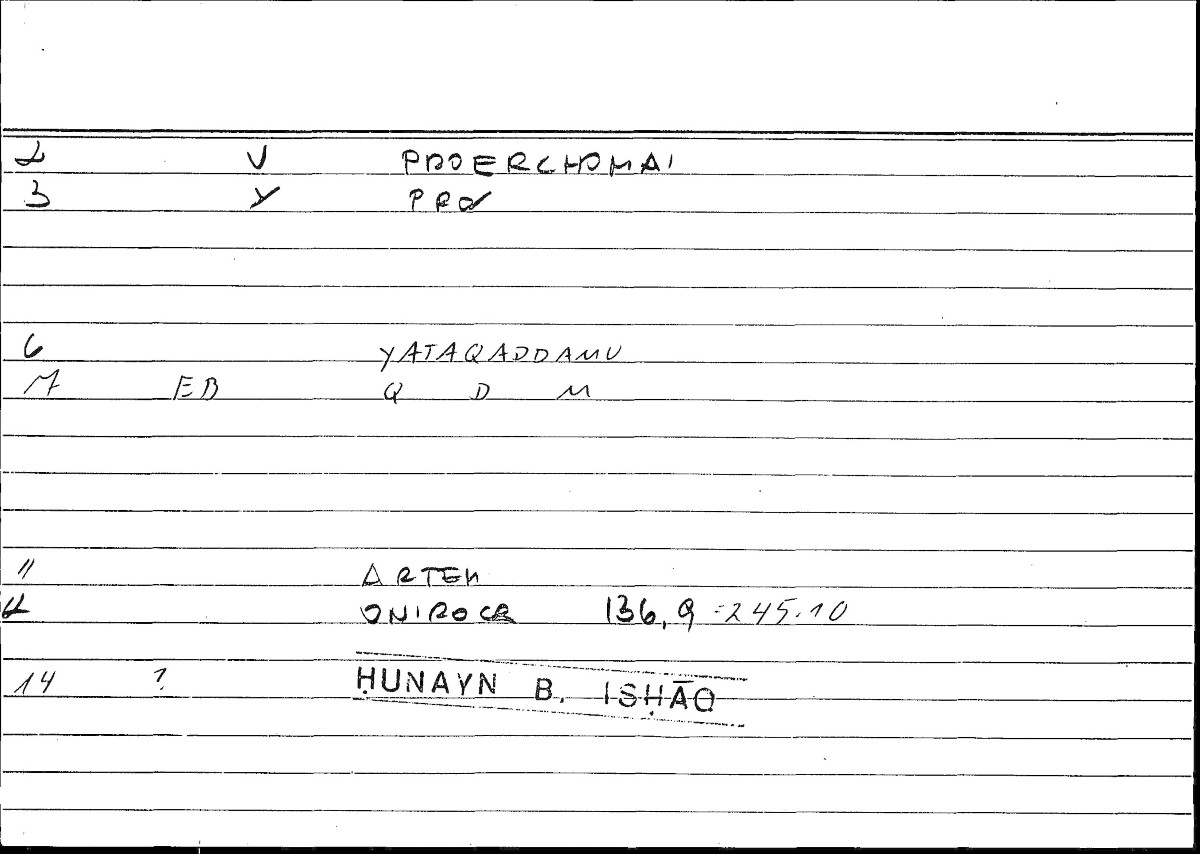 2 V PROERCHOMAI
3 Y PRO
6 YATAQADDAMU
M EB Q D M
11 ARTEM
12 ONIROCR 136,9 = 245.10
14 ? ḤUNAYN B. ISḤĀQ